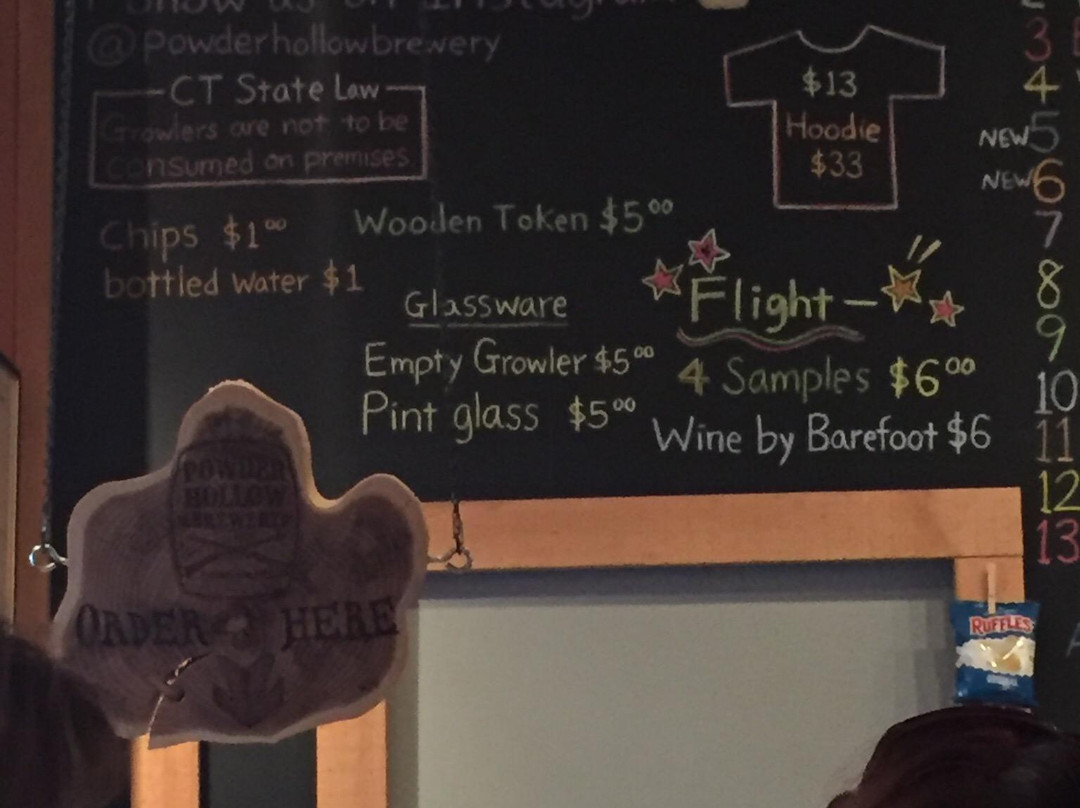 Show us on Instagram
@powderhollowbrewery
CT State Law
Growlers are not to be
consumed on premises.
$13
Hoodie
$33
Chips $1⁰⁰
bottled water $1
Wooden Token $5⁰⁰
Glassware
Empty Growler $5⁰⁰
Pint glass $5⁰⁰
Flight –
4 Samples $6⁰⁰
Wine by Barefoot $6
3
4
NEW 5
NEW 6
7
8
9
10
11
12
13
POWDER
HOLLOW
BREWERY
ORDER HERE
RUFFLES